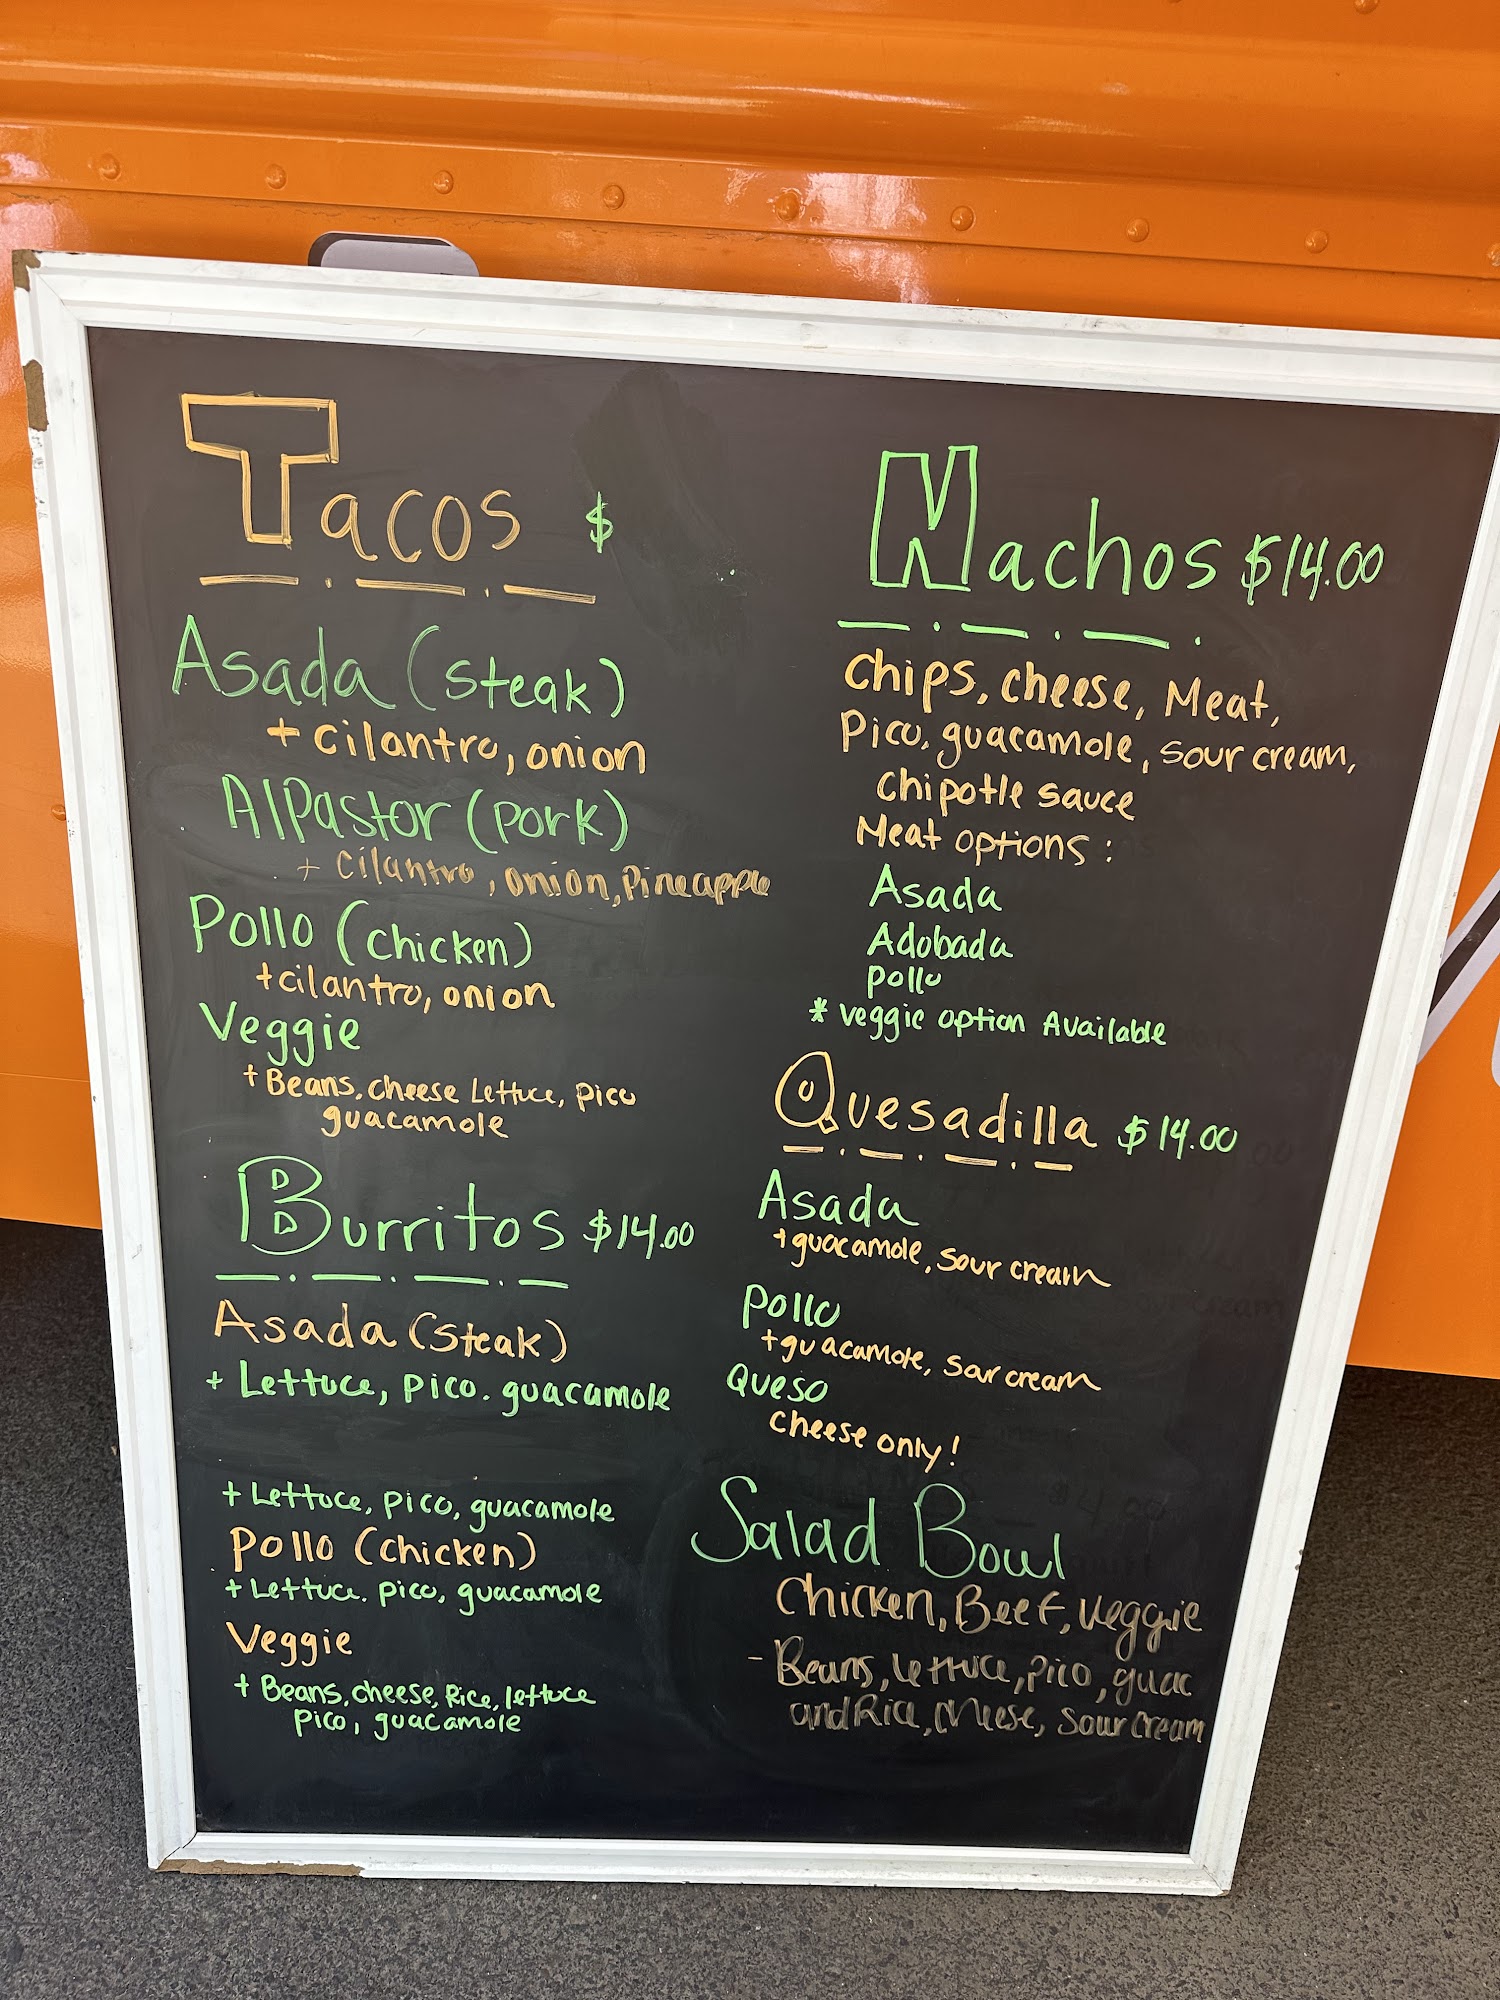 Tacos $
Asada (steak)
+ cilantro, onion
Al Pastor (pork)
+ cilantro, onion, pineapple
Pollo (chicken)
+ cilantro, onion
Veggie
+ Beans, cheese Lettuce, pico
guacamole
Burritos $14.00
Asada (steak)
+ Lettuce, pico. guacamole
+ Lettuce, pico, guacamole
Pollo (chicken)
+ Lettuce. pico, guacamole
Veggie
+ Beans, cheese, Rice, lettuce
pico, guacamole
Nachos $14.00
Chips, cheese, Meat,
Pico, guacamole, sour cream,
Chipotle sauce
Meat options :
Asada
Adobada
pollo
* veggie option Available
Quesadilla $14.00
Asada
+ guacamole, sour cream
Pollo
+ guacamole, sour cream
Queso
cheese only!
Salad Bowl
Chicken, Beef, veggie
- Beans, lettuce, pico, guac
and Rice, cheese, sour cream